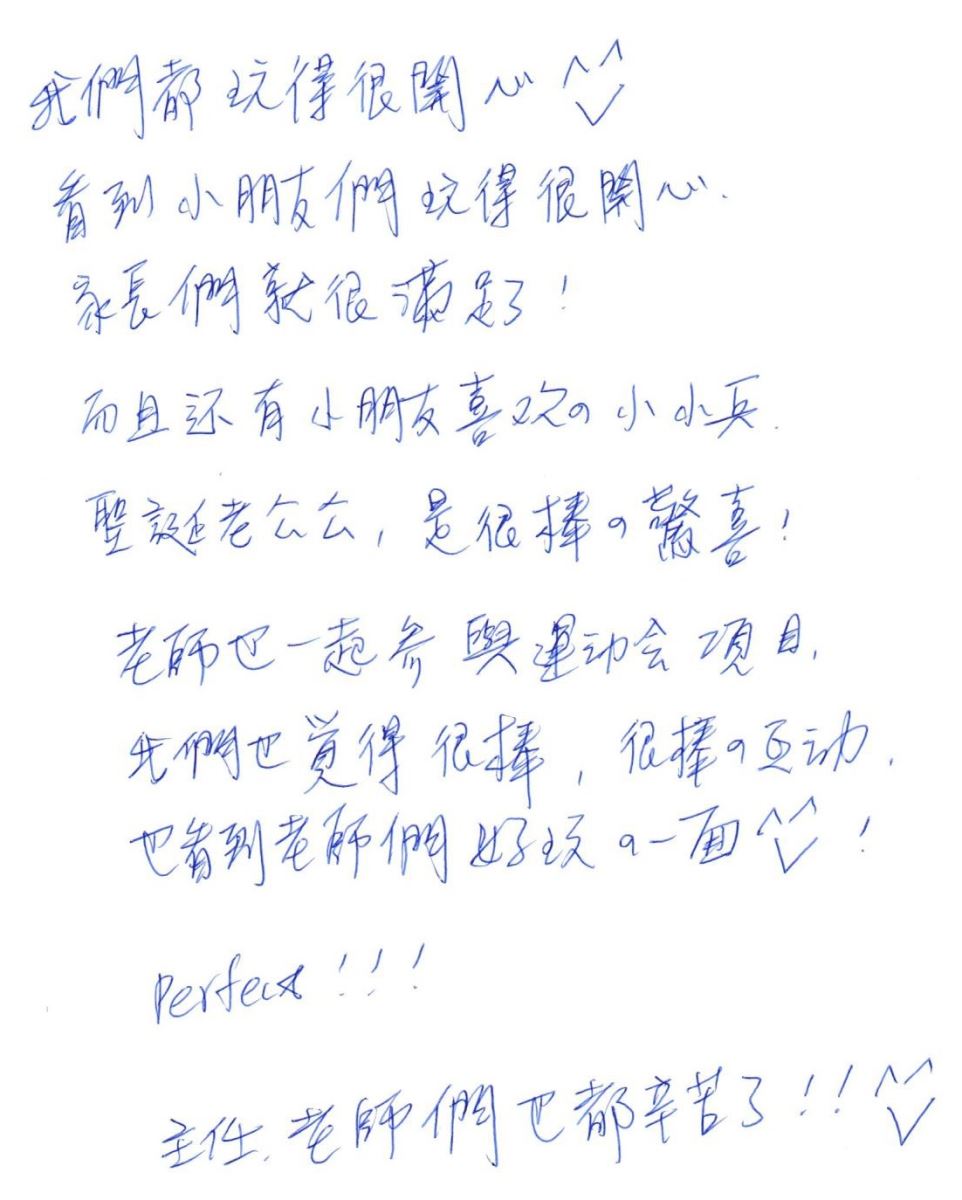 我們都玩得很開心 ^^
看到小朋友們玩得很開心.
家長們就很滿足了!
而且还有小朋友喜欢の小小兵.
聖誕老公公, 是很棒の驚喜!
老師也一起参與運动会項目,
我們也覚得很棒, 很棒の互动,
也看到老師們好玩の一面^^!
Perfect!!!
主任.老師們也都辛苦了!!^^